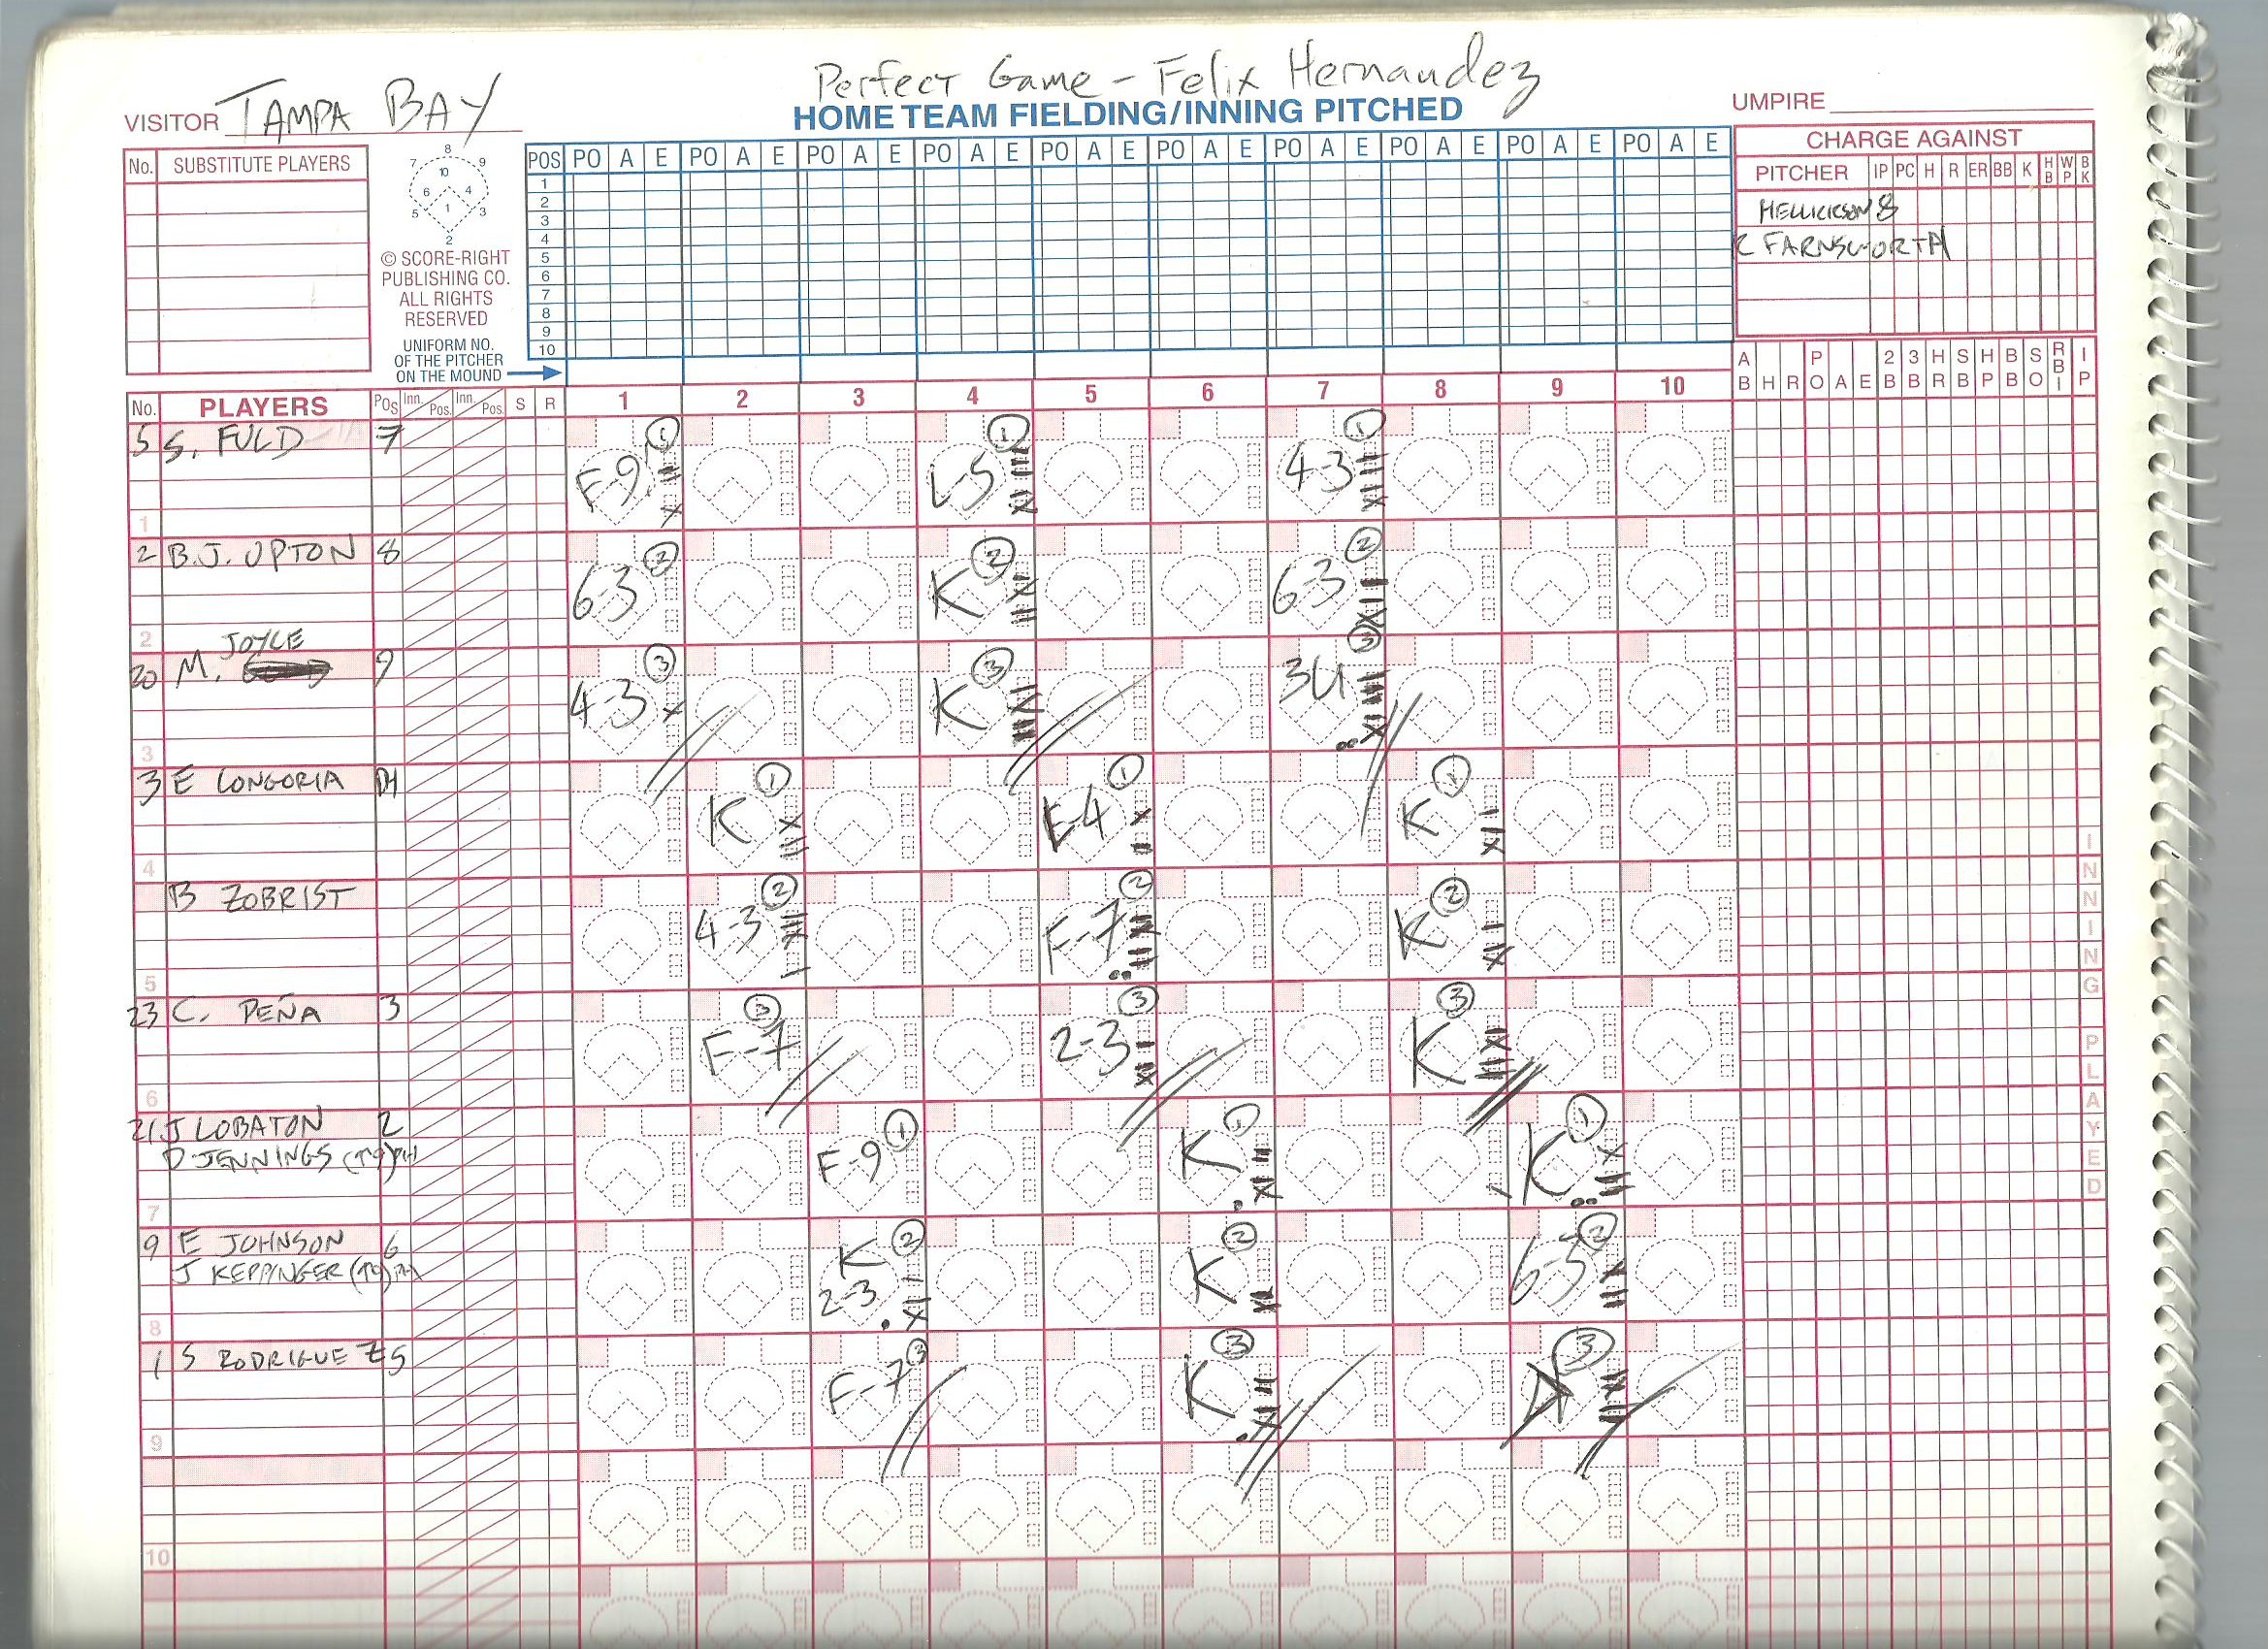 Perfect Game - Felix Hernandez
VISITOR TAMPA BAY
HOME TEAM FIELDING/INNING PITCHED
UMPIRE
No. SUBSTITUTE PLAYERS
8
7 9
10
6 4
5 1 3
2
© SCORE-RIGHT
PUBLISHING CO.
ALL RIGHTS
RESERVED
UNIFORM NO.
OF THE PITCHER
ON THE MOUND
POS PO A E PO A E PO A E PO A E PO A E PO A E PO A E PO A E PO A E PO A E
1
2
3
4
5
6
7
8
9
10
CHARGE AGAINST
PITCHER IP PC H R ER BB K HB WP BK
HELLICKSON 8
FARNSWORTH
AB H R PO A E 2B 3B HR SB HP BB SO RBI IP
No. PLAYERS Pos Inn. Pos. Inn. Pos. S R 1 2 3 4 5 6 7 8 9 10
5 S. FULD 7 F-9 1 L-5 1 4-3 1
1
2 B.J. UPTON 8 6-3 2 K 2 6-3 2
2
20 M. JOYCE 9 4-3 3 K 3 3U 3
3
3 E LONGORIA DH K 1 F-4 1 K 1
4
B ZOBRIST 4-3 2 F-7 2 K 2
5
23 C. PEÑA 3 F-7 3 2-3 3 K 3
6
21 J LOBATON 2 F-9 1 K 1 K 1
D JENNINGS (T9) PH
7
9 E JOHNSON 6 K 2-3 2 K 2 6-3 2
J KEPPINGER (T9) PH
8
1 S RODRIGUEZ 5 F-7 3 K 3 3
9
10
INNING PLAYED